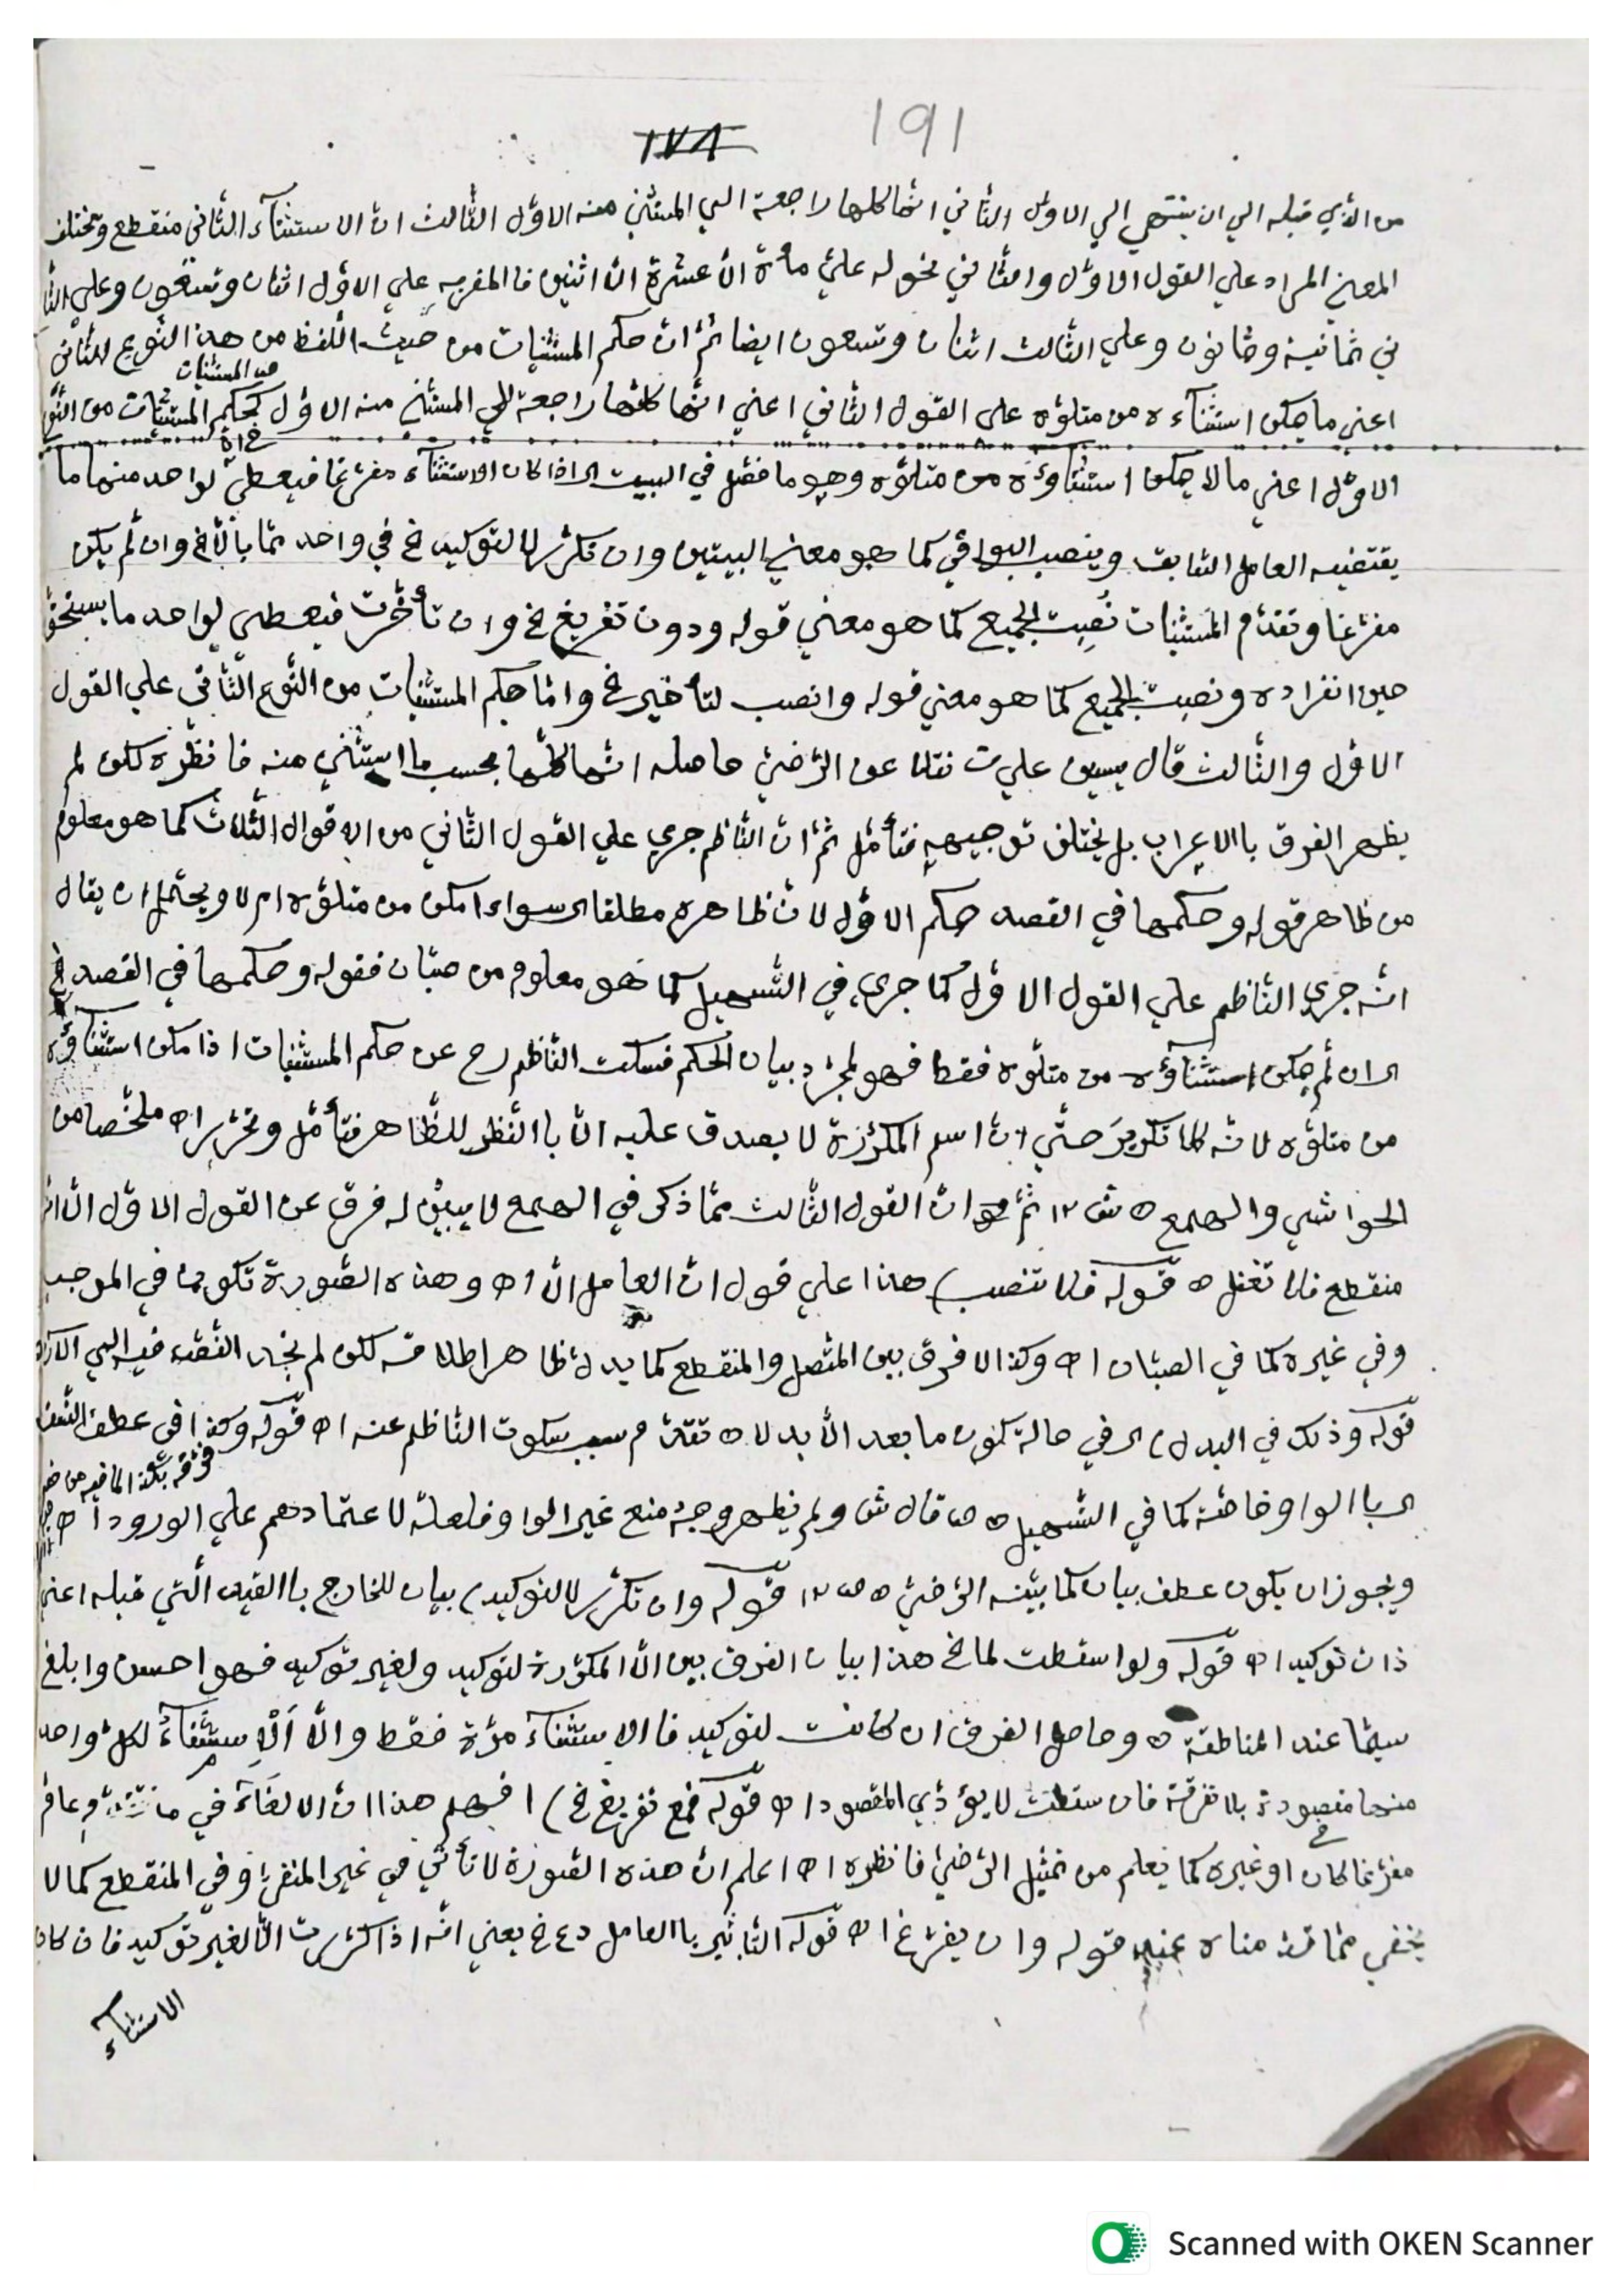 ١٩١
١٧٨
من الذي قبله الي ان ينتهي الي الاول الثاني انها كلها راجعة الي المستثني منه الاول الثالث ان الاستثنآء الثاني منقطع ويختلف
المعني المراد علي القول الاول والثاني نحو له عليّ مأة الا عشرة الا اثنين فالمقر به علي الاول اثنان وتسعون وعلي الثا
ني ثمانية وثمانون وعلي الثالث اثنان وتسعون ايضا ثم ان حكم المستثنيات من حيث اللفظ من هذا النوع الثاني
من المستثنيات
اعني ما يمكن استثنآءه من متلوّه علي القول الثاني اعني انها كلها راجعة الي المستثني منه الاول كحكم المستثنيات من النو
الاول اعني ما لا يمكن استثناؤه من متلوّه وهو ما فصّل في البيت اى اذا كان الاستثنآء مفرغا فيعطي لواحد منهما ما
يقتضيه العامل السابق وينصب البواقي كما هو معني البيتين وان تكرّر لا لتوكيد الخ في واحد مما بالا الخ وان لم يكن
مفرّغا وتقدّم المستثنيات نُصِبت الجميع كما هو معني قوله ودون تفريغ الخ وان تأخّرت فيعطي لواحد ما يستحق
حين انفراده ونصبت الجميع كما هو معني قوله وانصب لتأخير الخ واما حكم المستثنيات من النّوع الثّاني علي القول
الاوّل والثّالث قال يسين علي ت نقلا عن الرّضيّ حاصله انّها كلّها بحسب ما استثني منه فانظره لكن لم
يظهر الفرق باالاعراب بل يختلف توجيهه فتأمّل ثمّ انّ النّاظم جري علي القول الثّاني من الاقوال الثّلاث كما هو معلوم
من ظاهر قوله وحكمها في القصد حكم الاوّل لانّ ظاهره مطلقا اى سواء امكن من متلوّه ام لا ويحتمل ان يقال
انّه جري النّاظم علي القول الاوّل كما جري في التّسهيل كما هو معلوم من صبّان فقوله وحكمها في القصد الخ
اى ان لم يمكن استثناؤه من متلوّه فقط فهو لمجرّد بيان الحكم فسكت النّاظم رح عن حكم المستثنيات اذا مكن استثنآؤه
من متلوّه لانّه كلا تكرير حتّي انّ اسم المكرّرة لا يصدق عليه الّا باالنّظر للظّاهر فتأمّل وتحرّر اه ملخّصا من
الحواشي والهمع ثمّ انّ القول الثّالث ممّا ذكر في الهمع لا يبيّن له فرق عن القول الاوّل الّا انّه
منقطع فلا تغفل قوله فلا تنصب) هذا علي قول انّ العامل الّا اه وهذه الصّورة تكون في الموجب
وفي غيره كما في الصبّان اه وكذا لا فرق بين المتّصل والمنقطع كما يدلّ ظاهر اطلاقه لكن لم نجد النّقل فيه الي الآن
قوله وذلك في البدل) اى في حالة كون ما بعد الّا بدلا تقدّم سبب سكوت النّاظم عنه اه قوله وكذا في عطف النّسق
اى باالواو خاصّة كما في التّسهيل قال ش ولم يظهر وجه منع غير الواو فلعلّه لاعتمادهم علي الورود اه
ويجوز ان يكون عطف بيان كما بيّنه الرّضيّ قوله وان تكرّر لا لتوكيد) بيان للخارج باالقيد الّتي قبله اعني
ذات توكيد اه قوله ولو اسقطت لما الخ هذا بيان الفرق بين الّا المكرّرة لتوكيد ولغير توكيد فهو احسن وابلغ
سيّما عند المناطقة وحاصل الفرق ان كانت لتوكيد فاالاستثنآء مرّة فقط والّا اَلْاِستثنآءُ لكلّ واحد
منها مقصودة بلا تفرقة فان سقطت لا يؤدّي المقصود اه قوله فمع تفريغ الخ) افهم هذا انّ الالغآء في
مفرّغا كان او غيره كما يعلم من تمثيل الرّضيّ فانظره اه اعلم انّ هذه الصّورة لا تأتي في غير المنفي وفي المنقطع كما لا
يخفي ممّا قدّمناه عند قوله وان يفرّغ اه قوله التّأثير باالعامل دع الخ يعني انّه اذا كرّرت الّا لغير توكيد فان كان
الاستثنآء
Scanned with OKEN Scanner